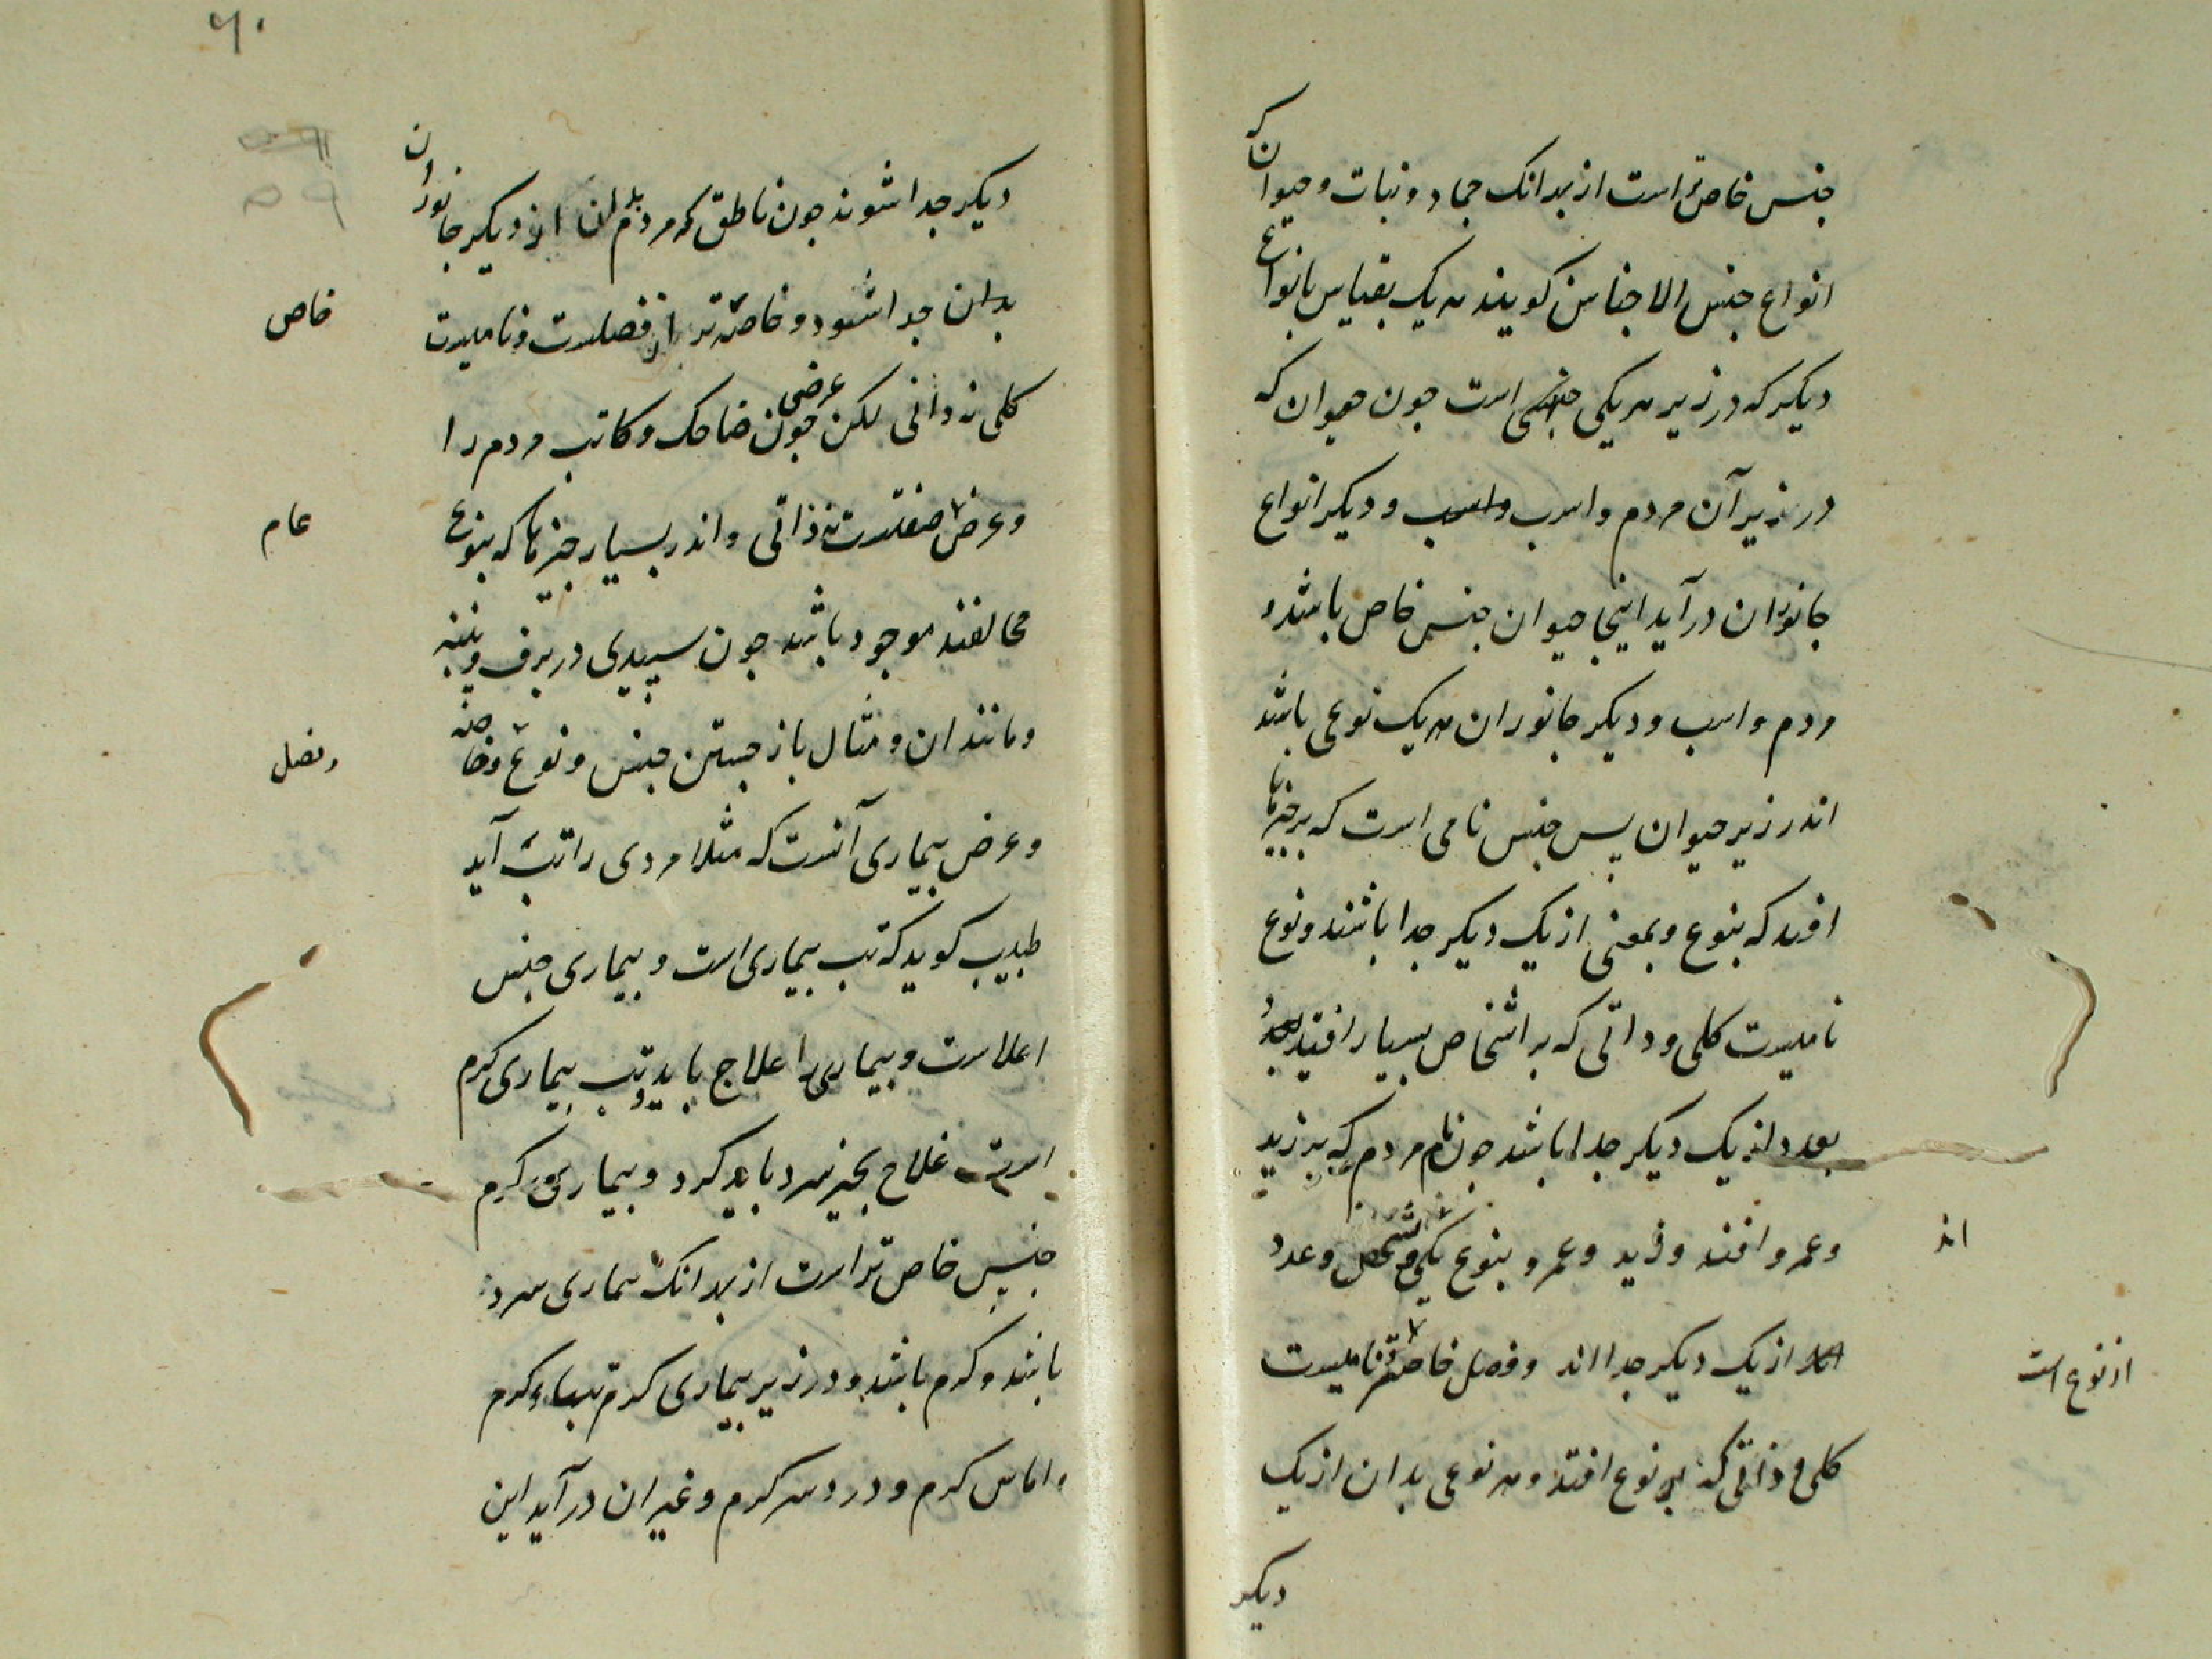 جنس خاص تر است از بهر انک جماد و نبات و حیوان که
انواع جنس الاجناس کویند هر یک بقیاس بانواع
دیکر که در زیر هر یکی جنسی است جون حیوان که
در زیر آن مردم و اسب و اسب و دیکر انواع
جانوران در آید اینجا حیوان جنس خاص باشد و
مردم و اسب و دیکر جانوران هر یک نوعی باشد
اندر زیر حیوان پس جنس نامی است که بر چیزها
افتد که بنوع و بمعنی از یک دیکر جدا باشند و نوع
نامیست کلی و ذاتی که بر اشخاص بسیار افتد
بعدد از یک دیکر جدا باشد جون نام مردم که بر زید
وعمرو افتد و زید و عمرو بنوع یکی و شخص و عدد
اند
از یک دیکر جدا اند و فصل خاصتر نامیست
از نوع است
کلی و ذاتی که بر نوع افتد و هر نوعی بدان از یک
دیکر
۶۰
۵۹
دیکر جدا شوند جون ناطق که مردم بدان از دیکر جانوران
بدان جدا شود و خاصه تر از فصلست و نامیست
خاص
کلی نه ذاتی لکن عرضی جون ضاحک و کاتب مردم را
وعرض صفتست نه ذاتی و اندر بسیار چیزها که بنوع
عام
مخالفند موجود باشد جون سپیدی در برف و پنبه
و مانند ان و مثال باز جستن جنس و نوع و خاصه
و فصل
و عرض بیماری آنست که مثلا مردی را تب آید
طبیب کوید که تب بیماری است و بیماری جنس
اعلاست و بیماری را علاج باید و تب بیماری کرم
است علاج بجیز سرد باید کرد و بیماری کرم
جنس خاص تر است از بهر انک بیماری سرد
باشد و کرم باشد و در زیر بیماری کرم تبهاء کرم
و اماس کرم و درد سر کرم و غیر ان در آید این